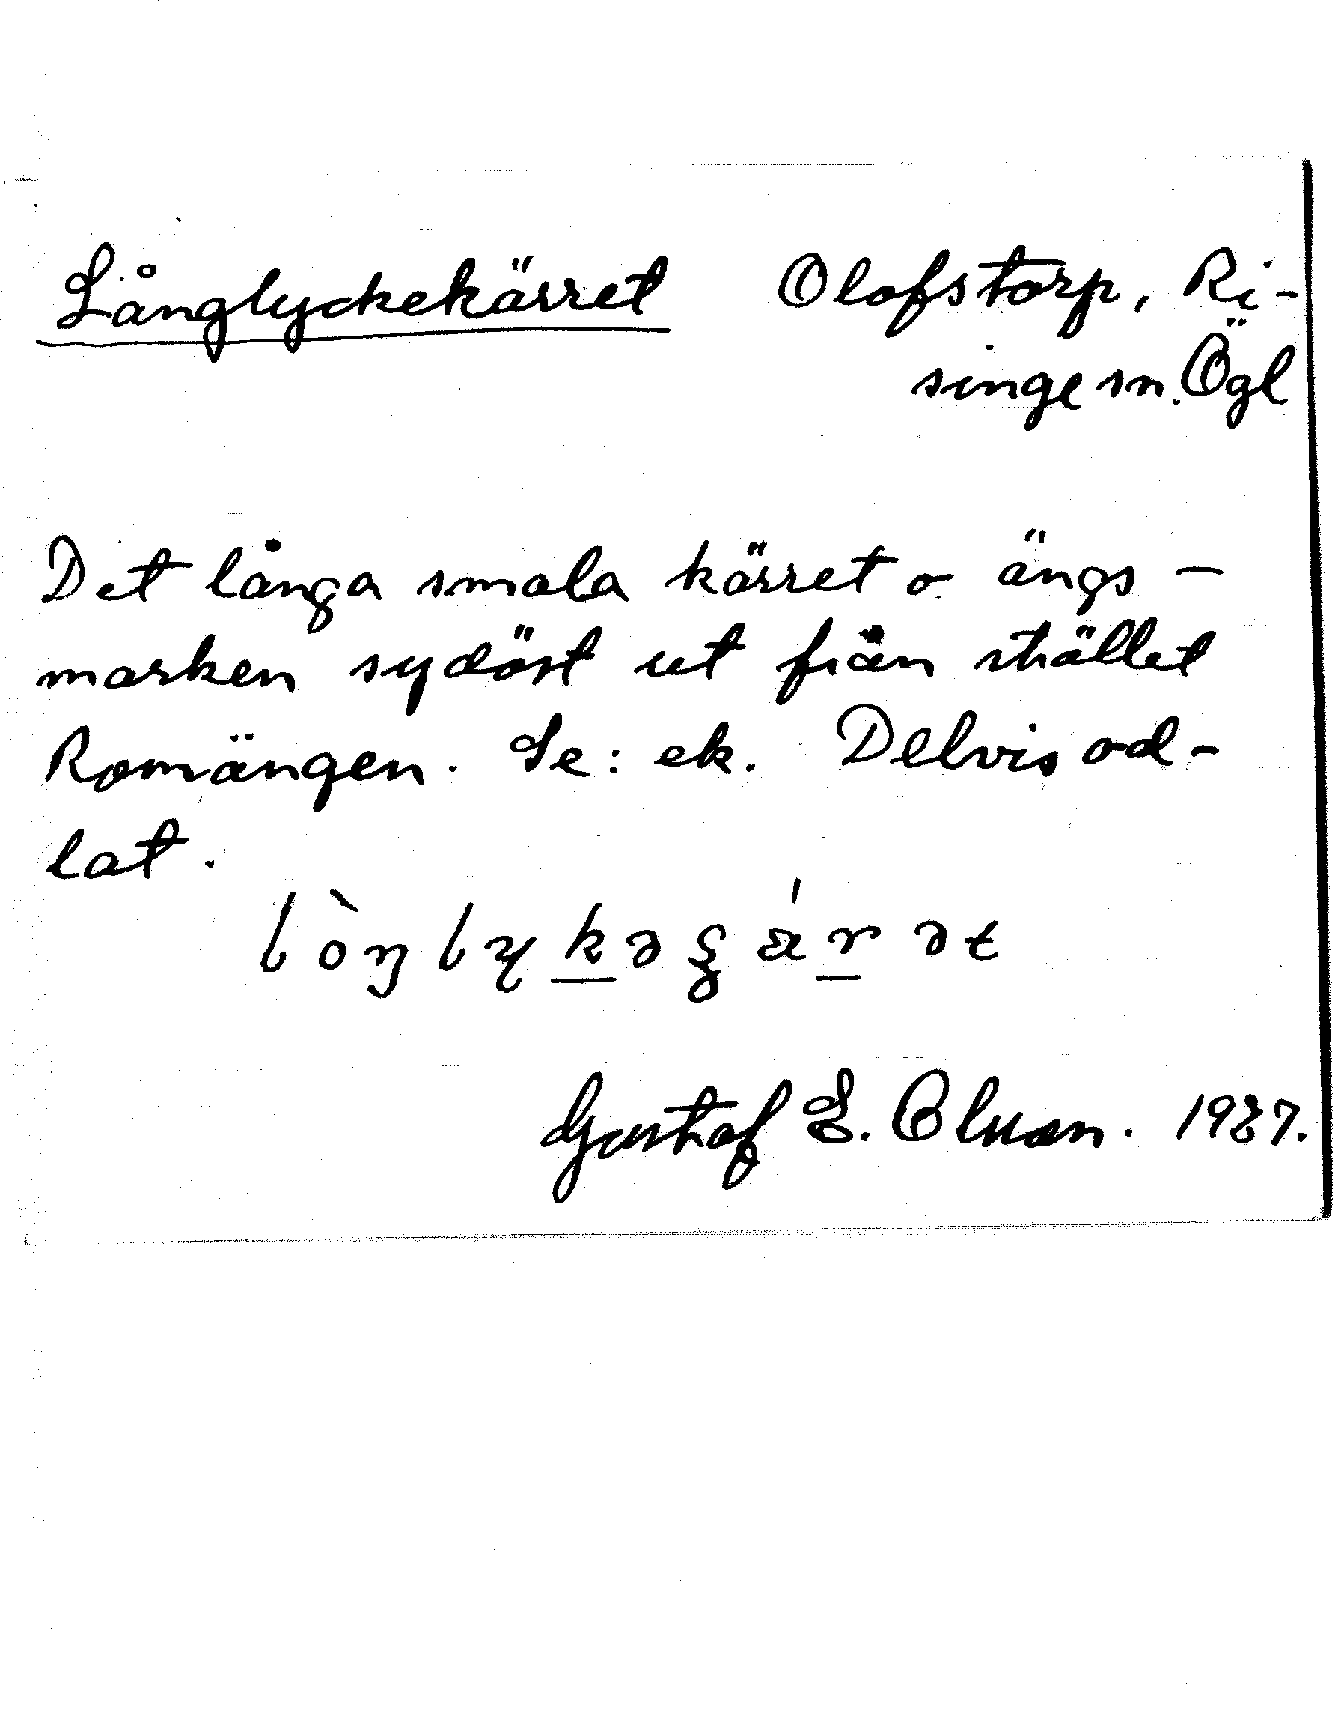 Långlyckekärret Olofstorp, Ri-
singe sn. Ögl
Det långa smala kärret o ängs-
marken sydöst ut från stället
Romängen. Se: ek. Delvis od-
lat.
Gustaf E. Olsson. 1937.